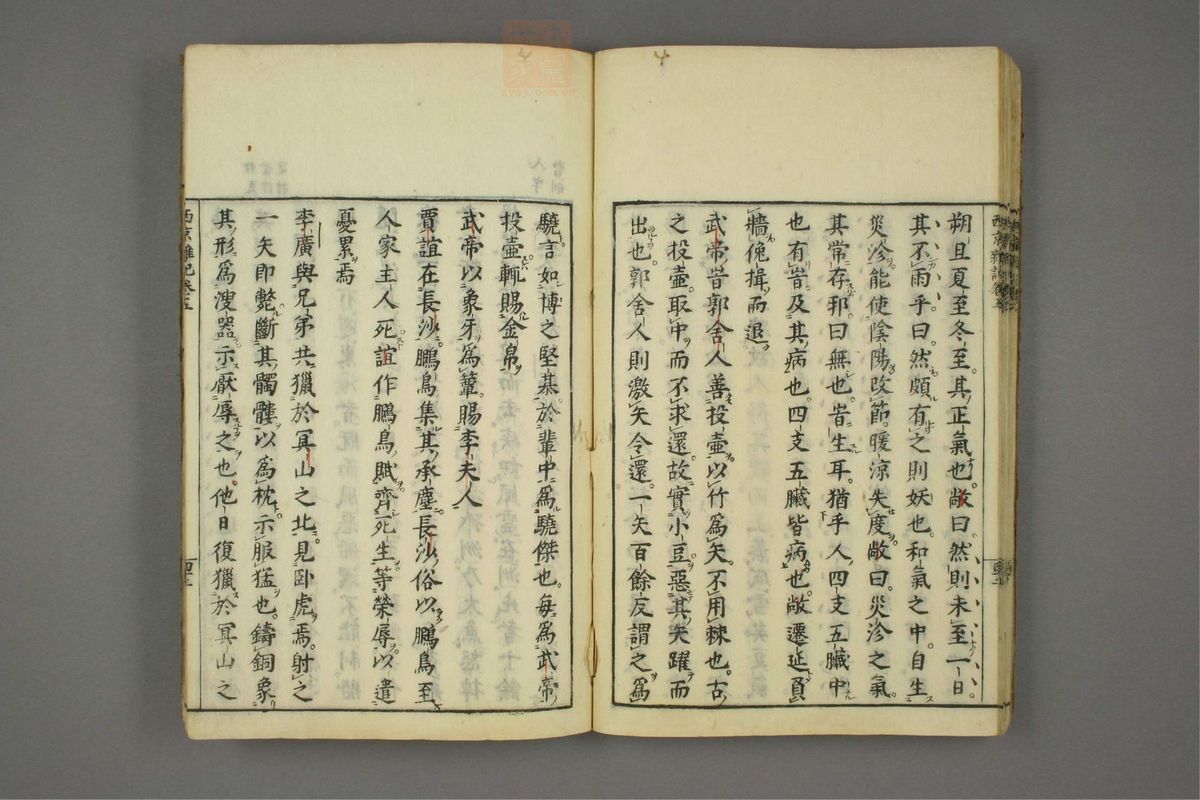 朔且夏至冬至其正氣也敞曰然則未至一日
其不雨乎曰然頗有之則妖也和氣之中自生
災沴能使陰陽改節暖涼失度敞曰災沴之氣
其常存邪曰無也旹生耳猶乎人四支五臟中
也有旹及其病也四支五臟皆病也敞遷延負
牆俛揖而退
武帝旹郭舍人善投壺以竹爲矢不用棘也古
之投壺取中而不求還故實小豆惡其矢躍而
出也郭舍人則激矢令還一矢百餘反謂之爲
驍言如博之堅棊於輩中爲驍傑也每爲武帝
投壺輒賜金帛
武帝以象牙爲簟賜李夫人
賈誼在長沙鵩鳥集其承塵長沙俗以鵩鳥至
人家主人死誼作鵩鳥賦齊死生等榮辱以遣
憂累焉
李廣與兄弟共獵於冥山之北見臥虎焉射之
一矢即斃斷其髑髏以爲枕示服猛也鑄銅象
其形爲溲器示厭辱之也他日復獵於冥山之
西京雜記卷五